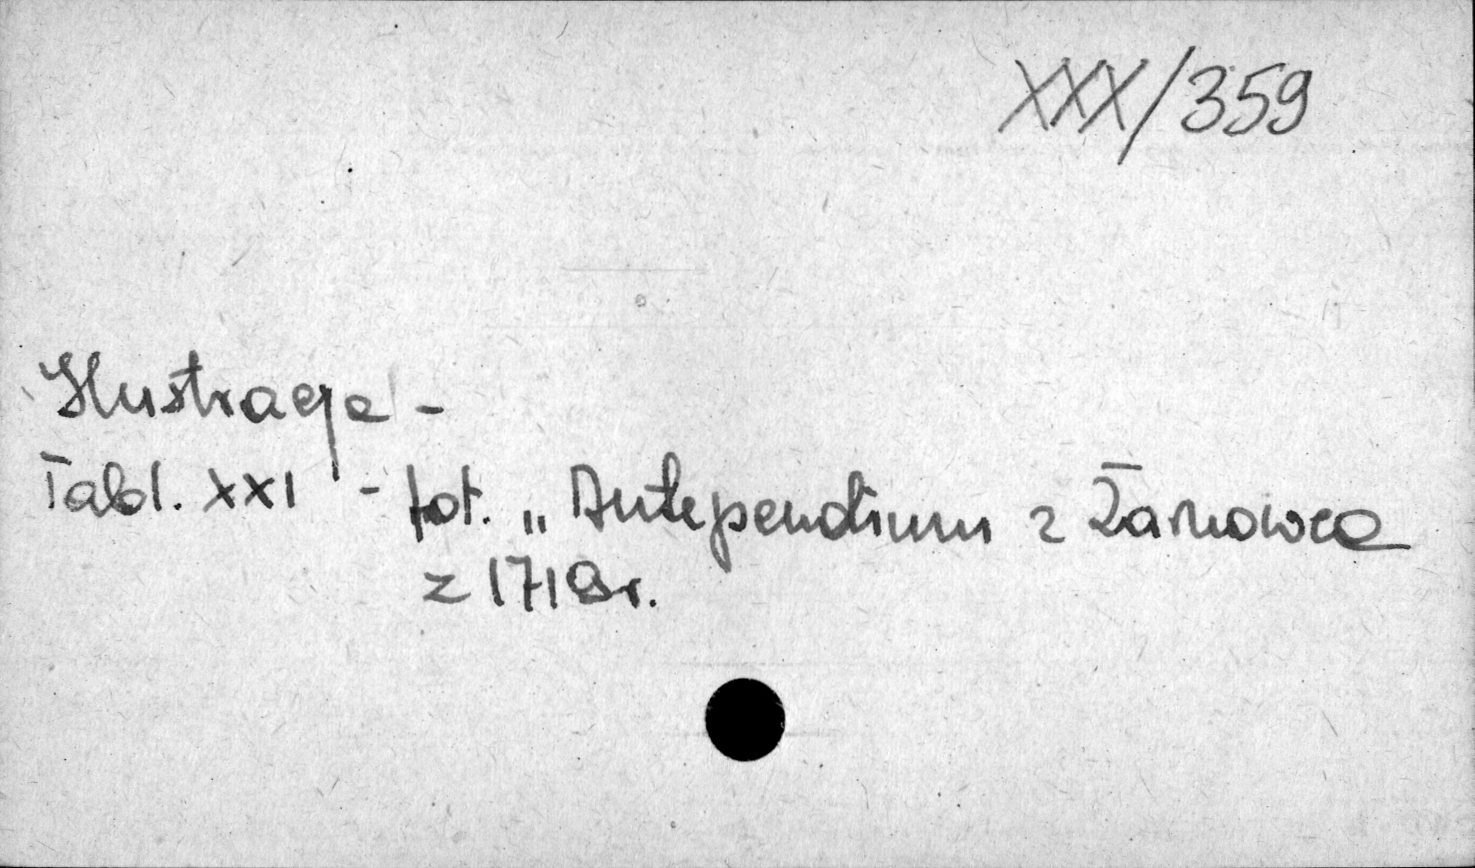 XXX/359
Ilustracja -
Tabl. XXI - fot. „Antependium z Żarnowca
z 1718r.